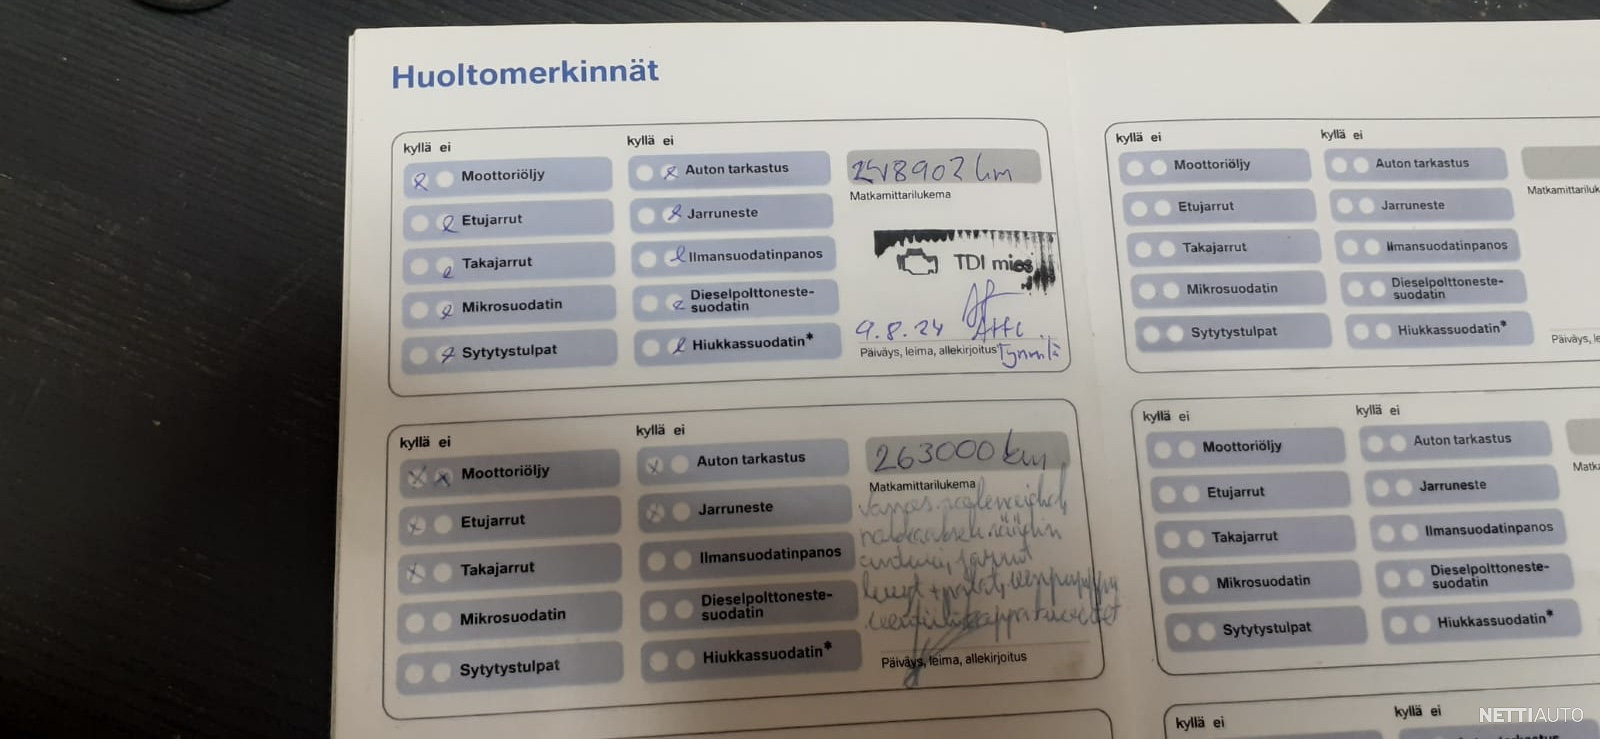 Huoltomerkinnät
kyllä ei
Moottoriöljy
Etujarrut
Takajarrut
Mikrosuodatin
Sytytystulpat
kyllä ei
Auton tarkastus
Jarruneste
Ilmansuodatinpanos
Dieselpolttoneste-
suodatin
Hiukkassuodatin*
248902 km
Matkamittarilukema
TDI mies
9.8.24
Päiväys, leima, allekirjoitus
kyllä ei
Moottoriöljy
Etujarrut
Takajarrut
Mikrosuodatin
Sytytystulpat
kyllä ei
Auton tarkastus
Jarruneste
Ilmansuodatinpanos
Dieselpolttoneste-
suodatin
Hiukkassuodatin*
263000 km
Matkamittarilukema
Päiväys, leima, allekirjoitus
kyllä ei
Moottoriöljy
Etujarrut
Takajarrut
Mikrosuodatin
Sytytystulpat
kyllä ei
Auton tarkastus
Jarruneste
Ilmansuodatinpanos
Dieselpolttoneste-
suodatin
Hiukkassuodatin*
Matkamittariluk
Päiväys, le
kyllä ei
Moottoriöljy
Etujarrut
Takajarrut
Mikrosuodatin
Sytytystulpat
kyllä ei
Auton tarkastus
Jarruneste
Ilmansuodatinpanos
Dieselpolttoneste-
suodatin
Hiukkassuodatin*
Matka
kyllä ei
kyllä ei
NETTIAUTO